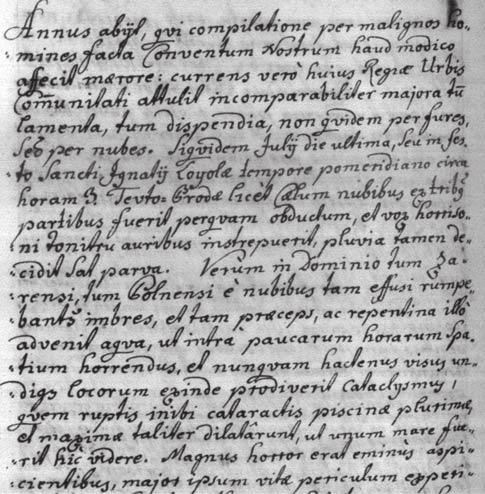 Annus abijt, qvi compilatione per malignos ho-
mines facta Conventum Nostrum haud modico
affecit mærore: currens verò huius Regiæ Urbis
Com̃unitati attulit incomparabiliter majora tũ
lamenta, tum dispendia, non qvidem per fures,
sed per nubes. Siqvidem Julij die ultima, seu in fes-
to Sancti Ignatij Loyolæ tempore pomeridiano circa
horam 3. Tevto-Brodæ licèt Cælum nubibus ex tribq
partibus fuerit perqvam obductum, et vox horriso-
ni tonitru auribus instrepuerit, pluvia tamen de-
cidit sat parva. Verum in Dominio tum
rensi, tum Polnensi è nubibus tam effusi rumpe-
bantr imbres, et tam præceps, ac repentina illò
advenit aqva, ut intrà paucarum horarum spa-
tium horrendus, et nunqvam hactenus visus un-
diqs locorum exinde prodiverit Cataclysmus,
qvem ruptis inibi cataractis piscinæ plurimæ,
et maximæ taliter dilatârunt, ut unum mare fue-
rit hic videre. Magnus horror erat eminùs aspi-
cientibus, major ipsum vitæ periculum experi-